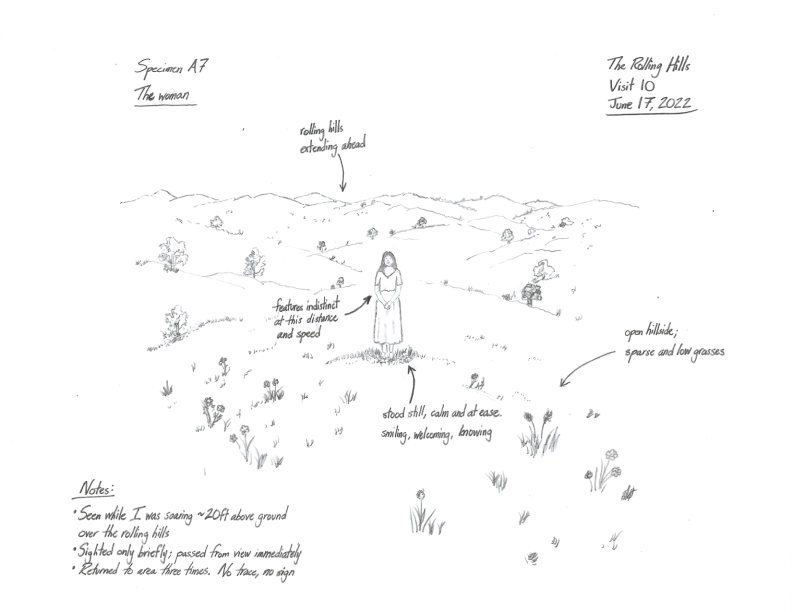 Specimen A7
The woman
The Rolling Hills
Visit 10
June 17, 2022
rolling hills
extending ahead
features indistinct
at this distance
and speed
open hillside;
sparse and low grasses
stood still, calm and at ease.
smiling, welcoming, knowing
Notes:
• Seen while I was soaring ~20ft above ground
over the rolling hills
• Sighted only briefly; passed from view immediately
• Returned to area three times. No trace, no sign